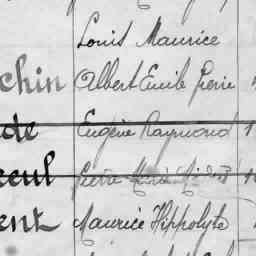 Louis Maurice
chin Albert Emile Pierre
de Eugène Raymond 1
eul Pierre
ent Maurice Hippolyte